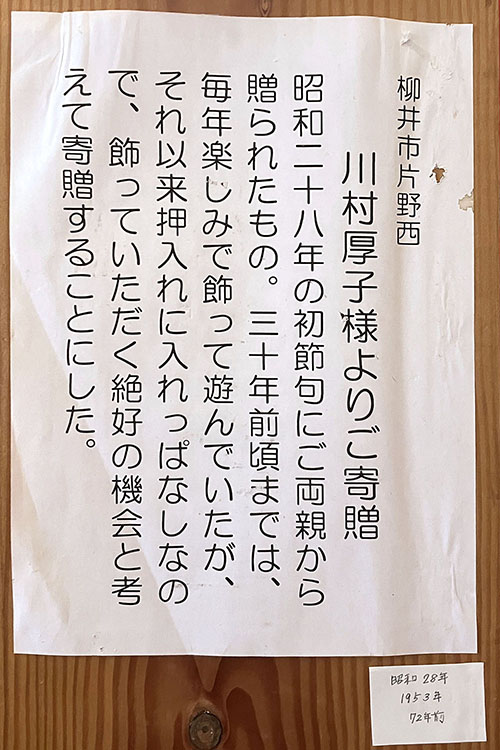 柳井市片野西
川村厚子様よりご寄贈
昭和二十八年の初節句にご両親から
贈られたもの。三十年前頃までは、
毎年楽しみで飾って遊んでいたが、
それ以来押入れに入れっぱなしなの
で、飾っていただく絶好の機会と考
えて寄贈することにした。
昭和28年
1953年
72年前